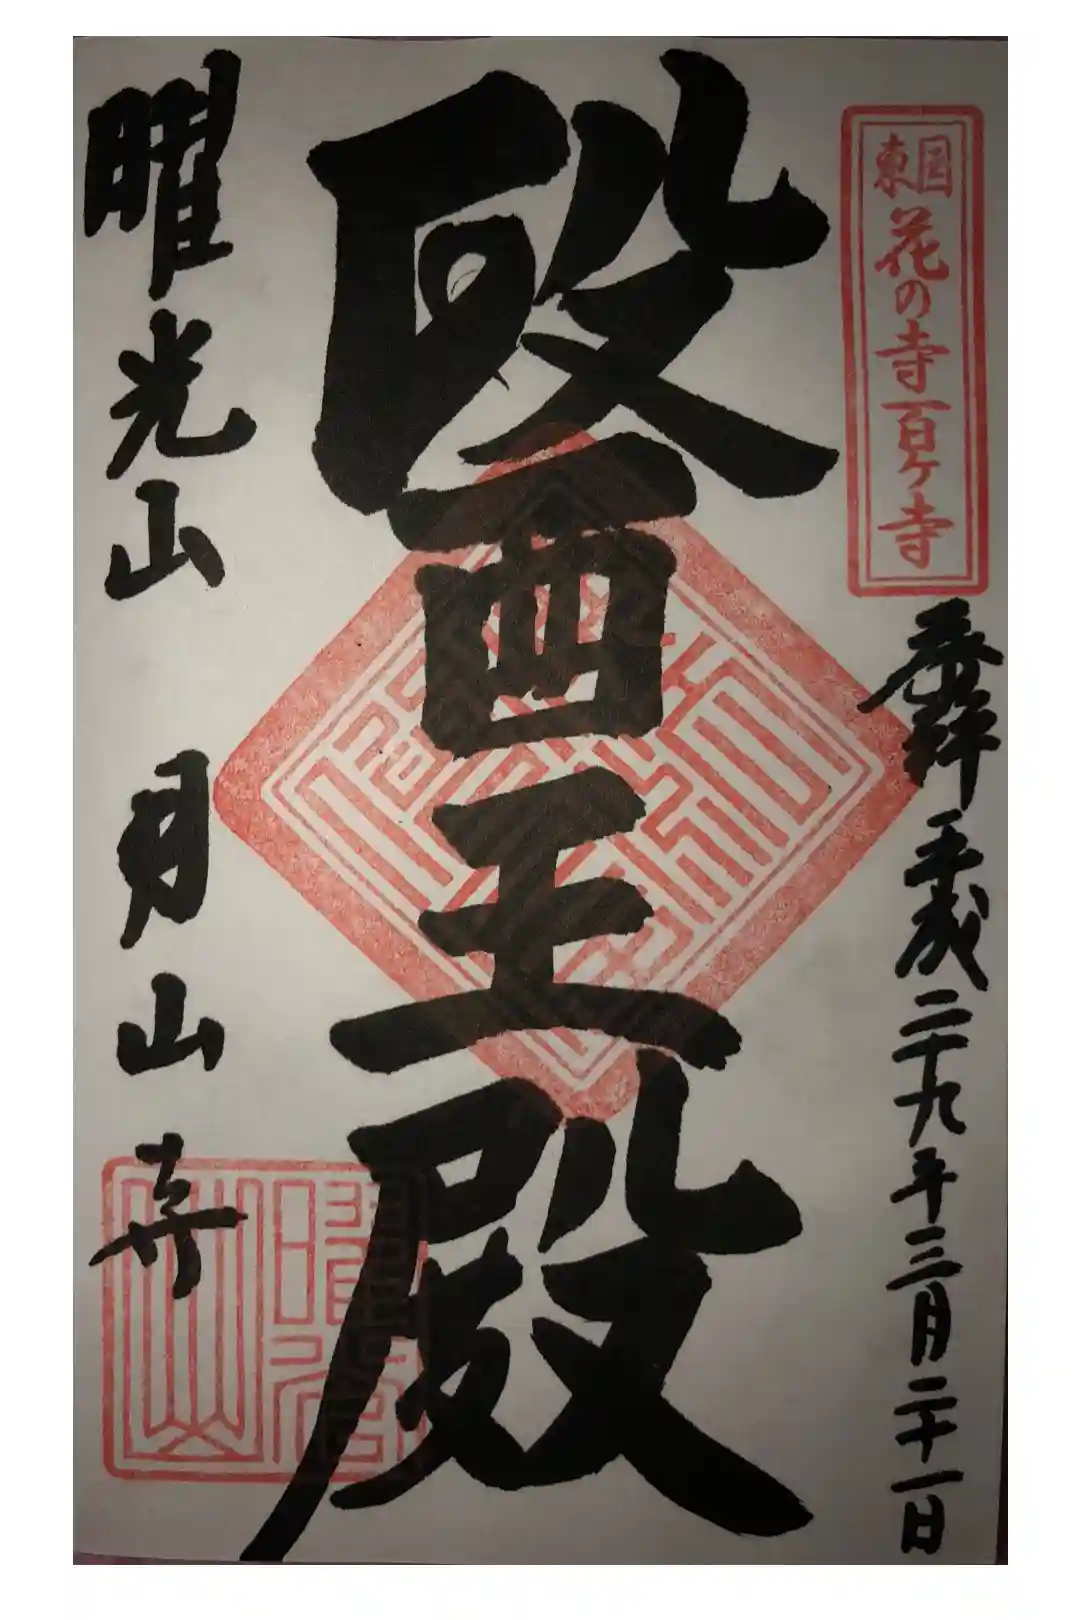 東国
花の寺百ヶ寺
奉拝 平成二十九年三月二十一日
醫王殿
曜光山 月山寺
曜光山